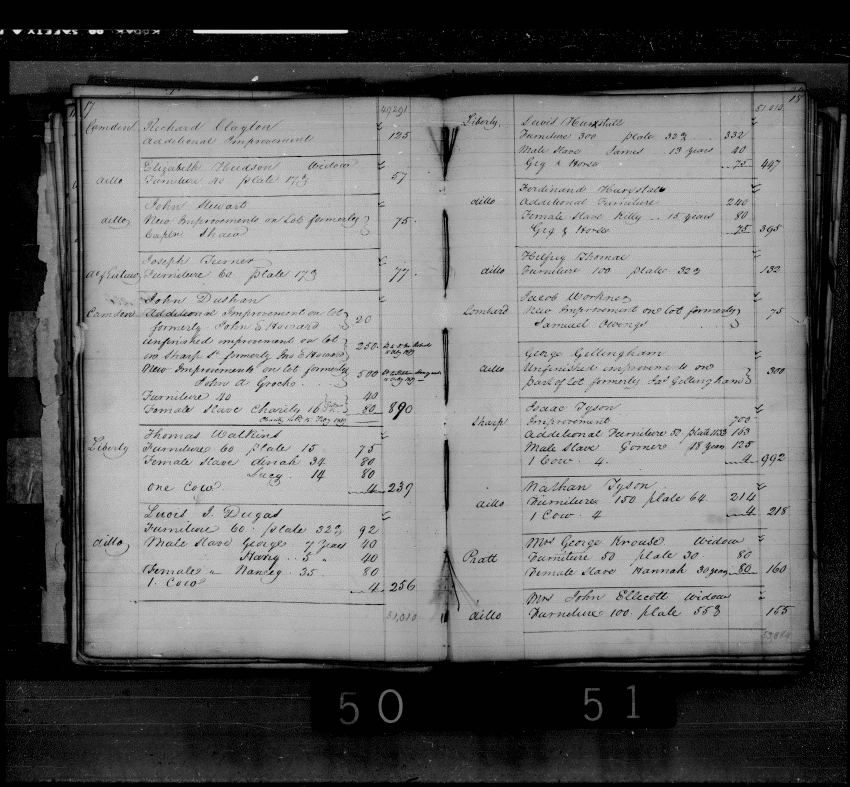 17
49291
Camden Richard Clayton
Additional Improvement 125
Elizabeth Hudson Widow
ditto Furniture 40 plate 17 57
John Stewart
ditto New Improvements on Lot formerly 75
Captn Shaw
Joseph Turner
Furniture 60 plate 17 77
John Dushan
Camden Additional Improvement on lot 20
formerly John E Howard
unfinished improvement on lot 250
on Sharp St formerly Jno E Howard
New Improvements on lot formerly 500
John A
Furniture 40 40
Female Slave Charity 16 80 890
Thomas Watkins
Liberty Furniture 60 plate 15 75
Female Slave dinah 34 80
Lucy 14 80
One Cow 4 239
Lewis J. Dugas
Furniture 60 plate 32 92
ditto Male Slave George 7 years 40
Harry 5 " 40
Female " Nancy 35 80
1 Cow 4 256
51,010
18
51,010
Liberty Lewis Hurxstall
Furniture 300 plate 32 332
Male Slave James 13 years 40
Gig & Horse 75 447
Ferdinand Hurxstall
ditto Additional Furniture 240
Female Slave Kitty 15 years 80
Gig & Horse 75 395
Thomae
ditto Furniture 100 plate 32 132
Jacob Workner
Lombard New Improvement on lot formerly 75
Samuel Owings
George Gellingham
ditto Unfinished improvements on 300
part of lot formerly Jas Gellingham
Isaac Tyson
Sharp Improvement 700
Additional Furniture 50 plate 163
Male Slave Gomere 18 years 125
1 Cow 4 4 992
Nathan Tyson
ditto Furniture 150 plate 64 214
1 Cow 4 4 218
Mrs George Krouse Widow
Pratt Furniture 50 plate 30 80
Female Slave Hannah 30 years 80 160
Mrs John Ellicott Widow
ditto Furniture 100 plate 55 155
50
51